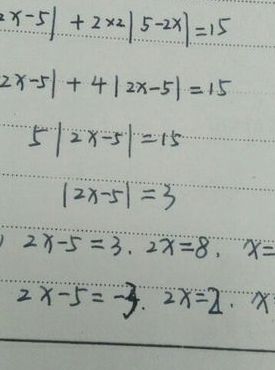 2x-5| + 2×2|5-2x|=15
2x-5| + 4|2x-5|=15
5|2x-5|=15
|2x-5|=3
) 2x-5=3. 2x=8. x=
2x-5=-3. 2x=2. x